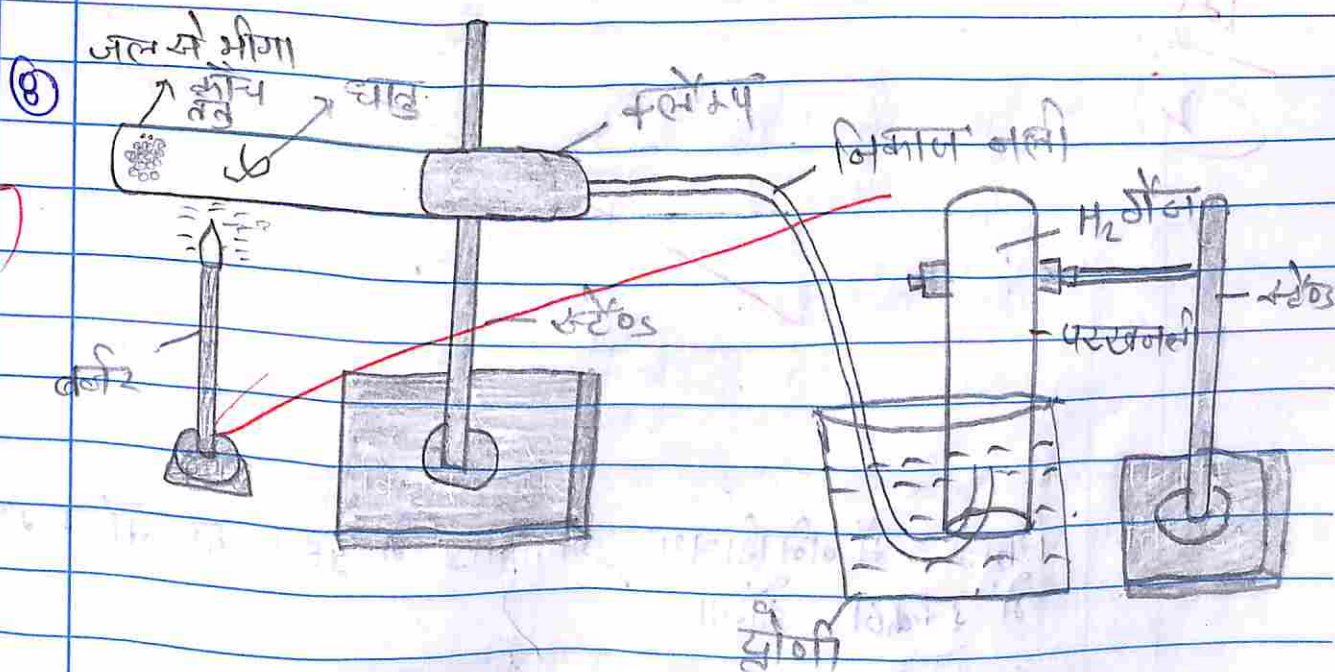 8
जल से भीगा
काँच
तंतु
धातु
क्लैम्प
निकास नली
H₂ गैस
स्टैण्ड
स्टैण्ड
परखनली
बर्नर
द्रोणी